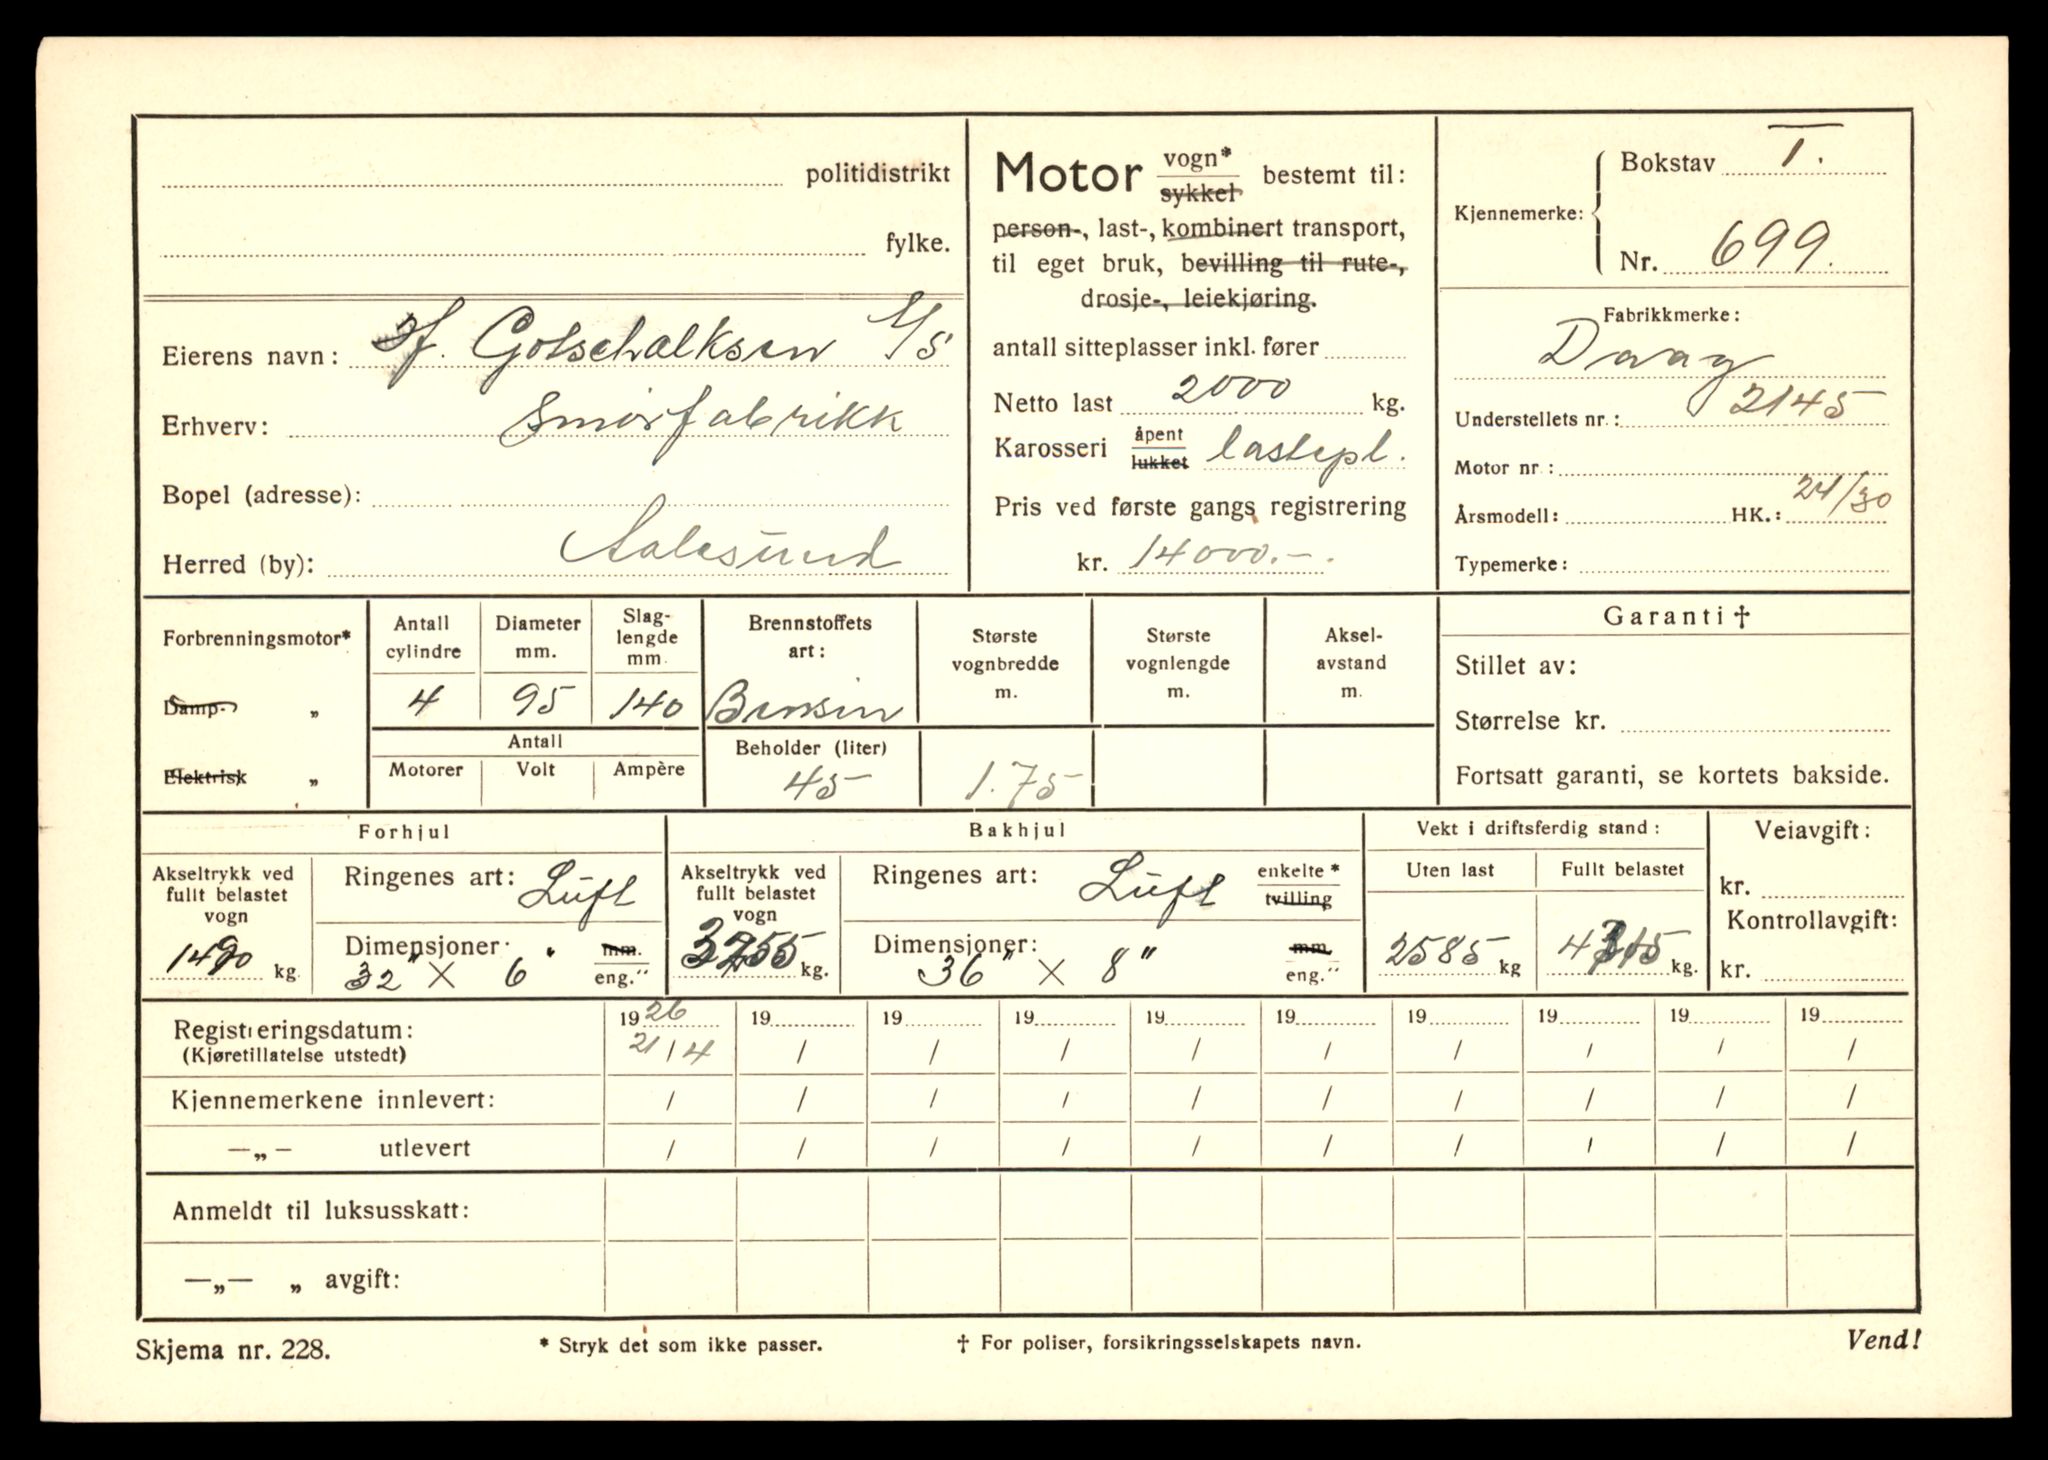 politidistrikt
fylke.
Eierens navn: Gotschalksen A/S
Erhverv: Smørfabrikk
Bopel (adresse):
Herred (by): Aalesund
Motor vogn* sykkel bestemt til:
person-, last-, kombinert transport,
til eget bruk, bevilling til rute-,
drosje-, leiekjøring.
antall sitteplasser inkl. fører
Netto last 2000 kg.
Karosseri åpent lukket lastepl.
Pris ved første gangs registrering
kr. 14000.-
Kjennemerke: Bokstav T.
Nr. 699.
Fabrikkmerke:
Daag
Understellets nr.: 2145
Motor nr.:
Årsmodell: HK.: 24/30
Typemerke:
Forbrenningsmotor*
Damp- „
Elektrisk „
Antall cylindre
4
Diameter mm.
95
Slag-
lengde
mm.
140
Antall
Motorer Volt Ampère
Brennstoffets
art:
Bensin
Beholder (liter)
45
Største
vognbredde
m.
1.75
Største
vognlengde
m.
Aksel-
avstand
m.
Garanti †
Stillet av:
Størrelse kr.
Fortsatt garanti, se kortets bakside.
Forhjul
Akseltrykk ved
fullt belastet
vogn
kg.
Ringenes art: Luft
Dimensjoner: mm.
32" × 6" eng."
Bakhjul
Akseltrykk ved
fullt belastet
vogn
kg.
Ringenes art: Luft enkelte* tvilling
Dimensjoner: mm.
36" × 8" eng."
Vekt i driftsferdig stand:
Uten last
2585 kg
Fullt belastet
kg.
Veiavgift:
kr.
Kontrollavgift:
kr.
Registreringsdatum: 1926 19 19 19 19 19 19 19 19 19
(Kjøretillatelse utstedt) 21/4 / / / / / / / / /
Kjennemerkene innlevert: / / / / / / / / / /
—„— utlevert / / / / / / / / / /
Anmeldt til luksusskatt:
—„— „ avgift:
Skjema nr. 228. * Stryk det som ikke passer. † For poliser, forsikringsselskapets navn. Vend!